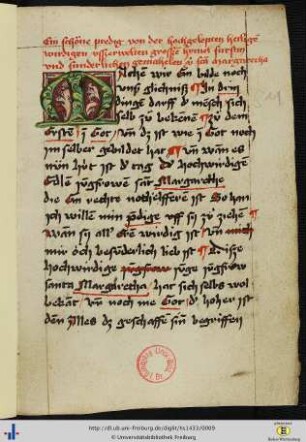 Ein schöne predig von der hochgelopten heilige
wirdigen usserwelten grossen himel fürstin
und sunderlichen gemachelen Sant margaretha
Machen wir ein bilde noch
unß glichniß ¶ In drij
dinge darff dz mensch sich
selb zu bekene ¶ Zu dem
Ersten in Got / Un dz ist wie in Got noch
im selber gebildet hat ¶ Un wan es
nun hüt ist dz tag dz hochwirdigen
Edlen jügfrowen sant Margarethe
die Ein rechte nothelfferin ist So han
ich willen min predige uff sij zu ziehe ¶
Wan sij all eren wirdig ist Un mich
mir och besunderlich lieb ist ¶ Diße
hochwirdige jugfrow junge jügfrow
santa Margaretha / hat sich selbs wol
bekant / Un noch me Got / dz hoher ist
den alles dz geschaffe sin begriffen
http://dl.ub.uni-freiburg.de/diglit/hs1433/0009
© Universitätsbibliothek Freiburg